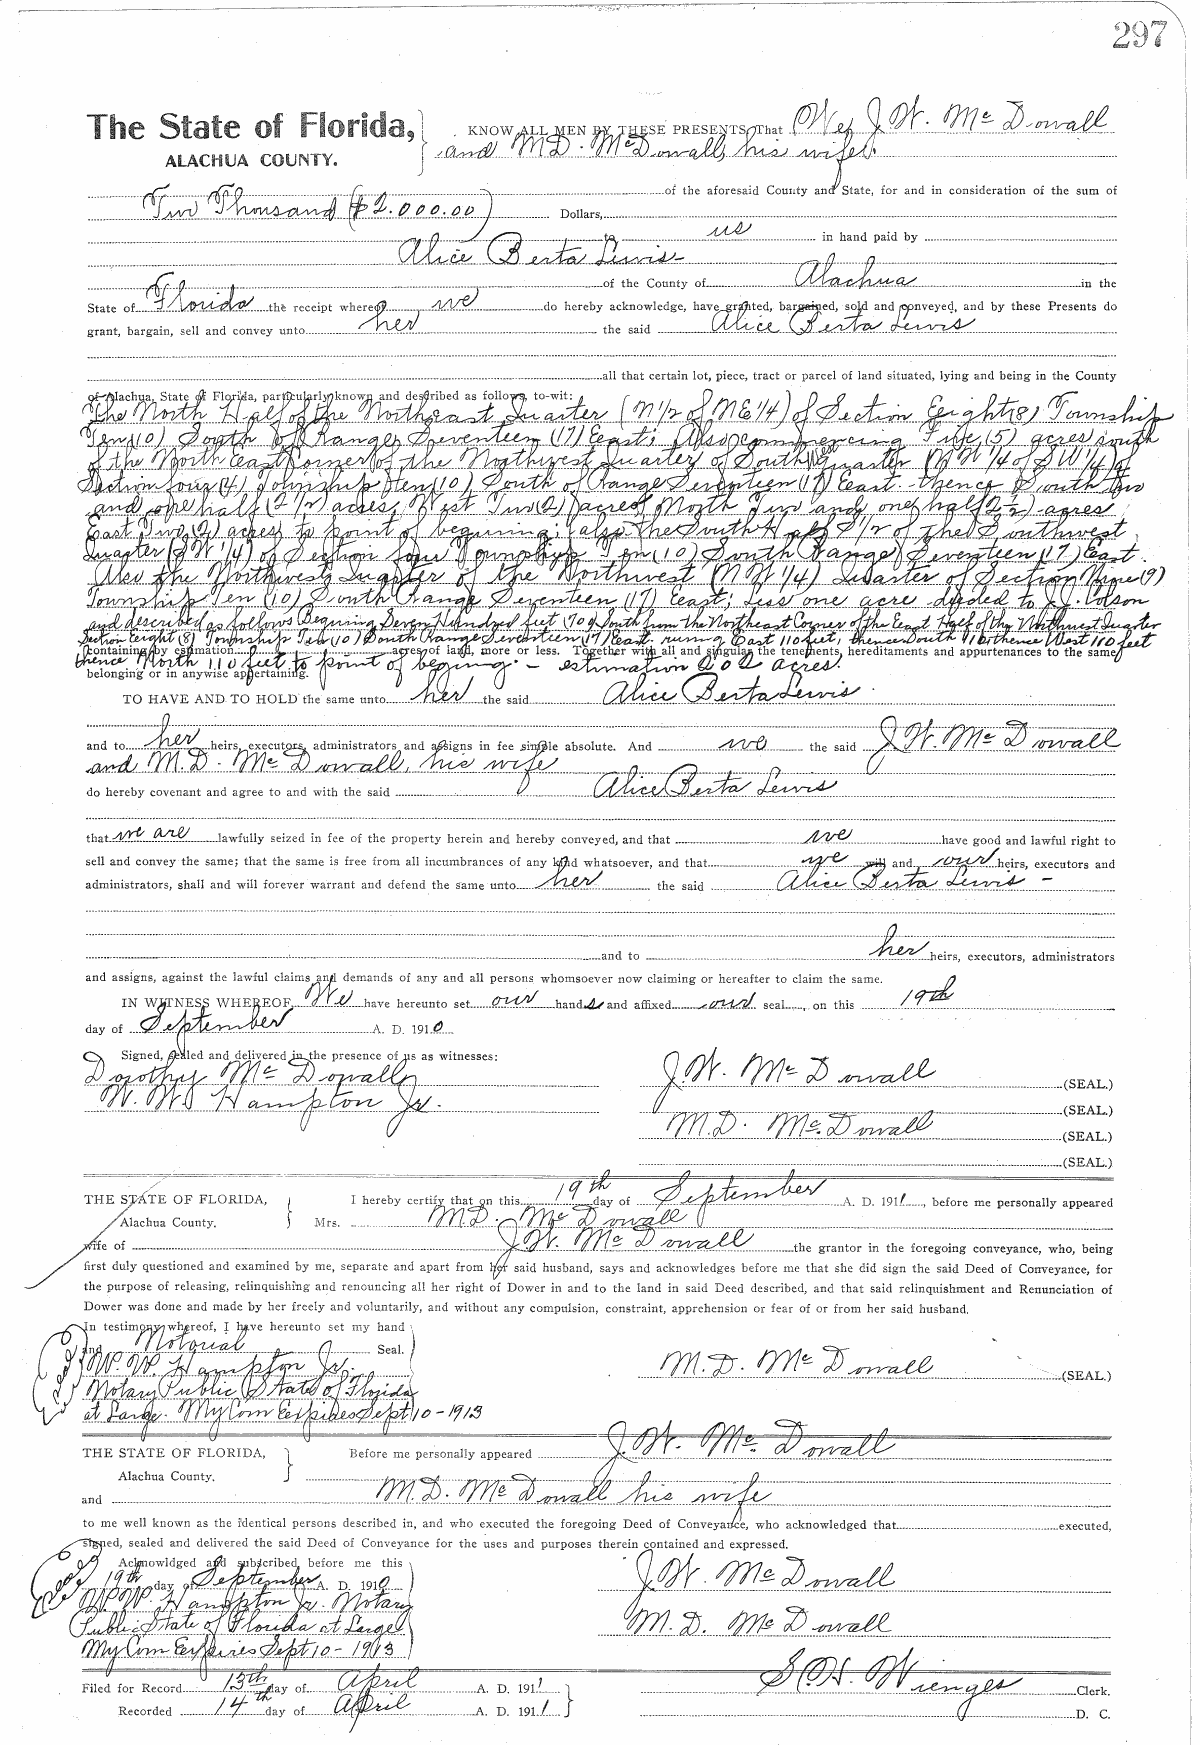 297
The State of Florida, KNOW ALL MEN BY THESE PRESENTS, That We, J. W. McDowall
ALACHUA COUNTY. and M.D. McDowall, his wife
of the aforesaid County and State, for and in consideration of the sum of
Two Thousand ($2.000.00) Dollars,
to us in hand paid by
Alice Berta Lewis
of the County of Alachua in the
State of Florida the receipt whereof we do hereby acknowledge, have granted, bargained, sold and conveyed, and by these Presents do
grant, bargain, sell and convey unto her the said Alice Berta Lewis
all that certain lot, piece, tract or parcel of land situated, lying and being in the County
of Alachua, State of Florida, particularly known and described as follows, to-wit:
The North Half of the Northeast Quarter (N 1/2 of NE 1/4) of Section Eeight (8) Township
Ten (10) South of Range Seventeen (17) East; Also commencing Five (5) acres south
of the North East Corner of the Northwest Quarter of South West Quarter (NW 1/4 of SW 1/4) of
Section four (4) Township Ten (10) South of Range Seventeen (17) East thence South Two
and one half (2 1/2) acres, West Two (2) acres North Two and one half (2½) acres
East Two (2) acres to point of begining; also the South Half S 1/2 of the Southwest
Quarter (SW 1/4) of Section four Township Ten (10) South Range Seventeen (17) East.
Also the Northwest Quarter of the Northwest (NW 1/4) Quarter of Section Nine (9)
Township Ten (10) South Range Seventeen (17) East; Less one acre deeded to J.J. Colson
and described as follows Begining Seven Hundred feet (700) South from the Northeast Corner of the East Half of the Northwest Quarter
Section Eeight (8) Township Ten (10) South Range Seventeen (17) East runing East 110 feet, thence South 110 thence West 110 feet
containing by estimation acres of land, more or less. Together with all and singular the tenements, hereditaments and appurtenances to the same
thence North 110 feet to point of beging. - estimation 202 acres.
belonging or in anywise appertaining.
TO HAVE AND TO HOLD the same unto her the said Alice Berta Lewis
and to her heirs, executors, administrators and assigns in fee simple absolute. And we the said J. W. McDowall
and M.D. McDowall, his wife
do hereby covenant and agree to and with the said Alice Berta Lewis
that we are lawfully seized in fee of the property herein and hereby conveyed, and that we have good and lawful right to
sell and convey the same; that the same is free from all incumbrances of any kind whatsoever, and that we will and our heirs, executors and
administrators, shall and will forever warrant and defend the same unto her the said Alice Berta Lewis -
and to her heirs, executors, administrators
and assigns, against the lawful claims and demands of any and all persons whomsoever now claiming or hereafter to claim the same.
IN WITNESS WHEREOF, We have hereunto set our hands and affixed our seal, on this 19th
day of September A. D. 1910
Signed, sealed and delivered in the presence of us as witnesses:
Dorothy McDowall J. W. McDowall (SEAL.)
W. W. Hampton Jr. (SEAL.)
M.D. McDowall (SEAL.)
(SEAL.)
THE STATE OF FLORIDA, I hereby certify that on this 19th day of September A. D. 1911, before me personally appeared
Alachua County. Mrs. M.D. McDowall
wife of J. W. McDowall the grantor in the foregoing conveyance, who, being
first duly questioned and examined by me, separate and apart from her said husband, says and acknowledges before me that she did sign the said Deed of Conveyance, for
the purpose of releasing, relinquishing and renouncing all her right of Dower in and to the land in said Deed described, and that said relinquishment and Renunciation of
Dower was done and made by her freely and voluntarily, and without any compulsion, constraint, apprehension or fear of or from her said husband.
In testimony whereof, I have hereunto set my hand
and Notorial Seal.
W. W. Hampton Jr. M.D. McDowall (SEAL.)
Notary Public State of Florida
at Large. My Com Eexpires Sept 10-1913
THE STATE OF FLORIDA, Before me personally appeared J. W. McDowall
Alachua County.
and M.D. McDowall his wife
to me well known as the identical persons described in, and who executed the foregoing Deed of Conveyance, who acknowledged that executed,
signed, sealed and delivered the said Deed of Conveyance for the uses and purposes therein contained and expressed.
Acknowldged and subscribed before me this
19th day of September A. D. 1910 J. W. McDowall
W. W. Hampton Jr. Notary
Public State of Florida at Large M. D. McDowall
My Com Eexpires Sept 10-1913
Filed for Record 13th day of April A. D. 1911 S. H. Wienges Clerk.
Recorded 14th day of April A. D. 1911. D. C.